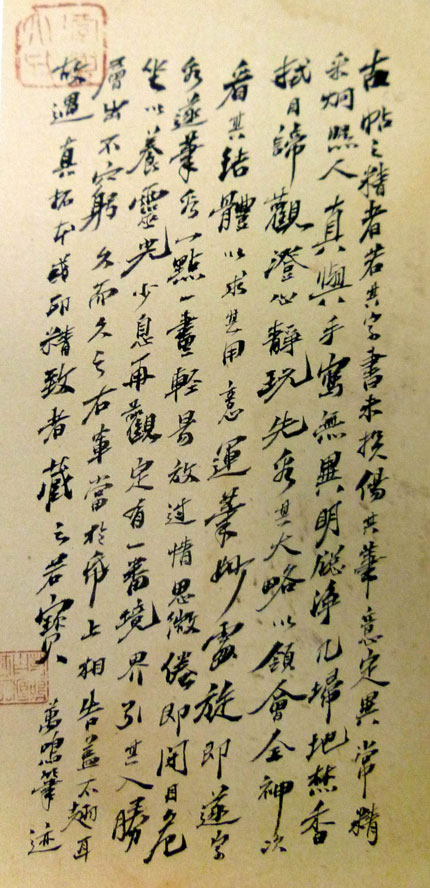 古帖之精者若其字書未損傷其筆意定異常精
采炯照人真與手寫無異明窓淨几埽地焚香
拭目諦觀澄心靜玩先看其大略以領會全神次
看其結體以求其用意運筆妙處旋即逐字
看逐筆看一點一畫輕易放過情思微倦即閉目危
坐以養靈光少息再觀定有一番境界引其入勝
層出不窮久而久之右軍當於帋上相告蓋不翅耳
故遇真拓本或印精致者藏之若寶 筆迹